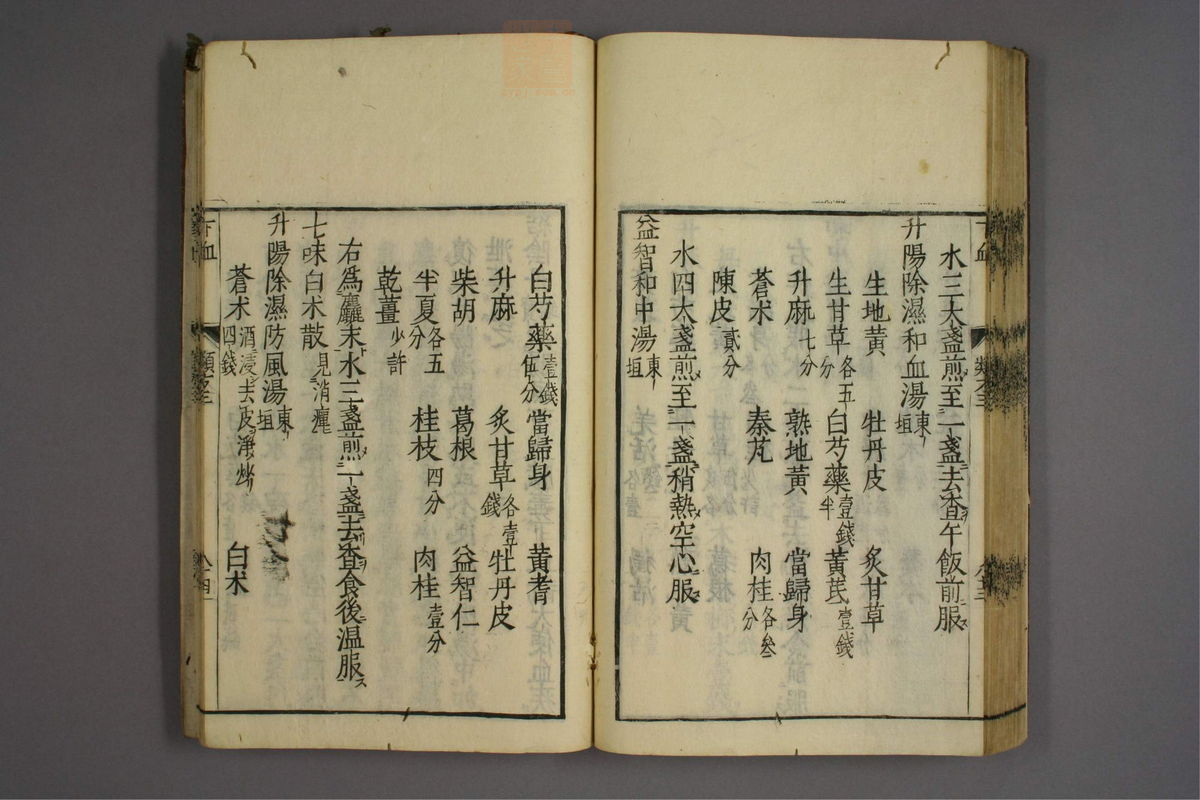 水三大盞煎至一盞去柤午飯前服
升陽除濕和血湯 東垣
生地黃 牡丹皮 炙甘草
生甘草 各五分 白芍藥 壹錢半 黃芪 壹錢
升麻 七分 熟地黃 當歸身
蒼朮 秦艽 肉桂 各叄分
陳皮 貳分
水四大盞煎至一盞稍熱空心服
益智和中湯 東垣
白芍藥 壹錢伍分 當歸身 黃耆
升麻 炙甘草 各壹錢 牡丹皮
柴胡 葛根 益智仁
半夏 各五分 桂枝 四分 肉桂 壹分
乾薑 少許
右為麤末水三盞煎一盞去柤食後温服
七味白朮散 見消癉
升陽除濕防風湯 東垣
蒼朮 酒浸去皮淨炒四錢 白朮
下血